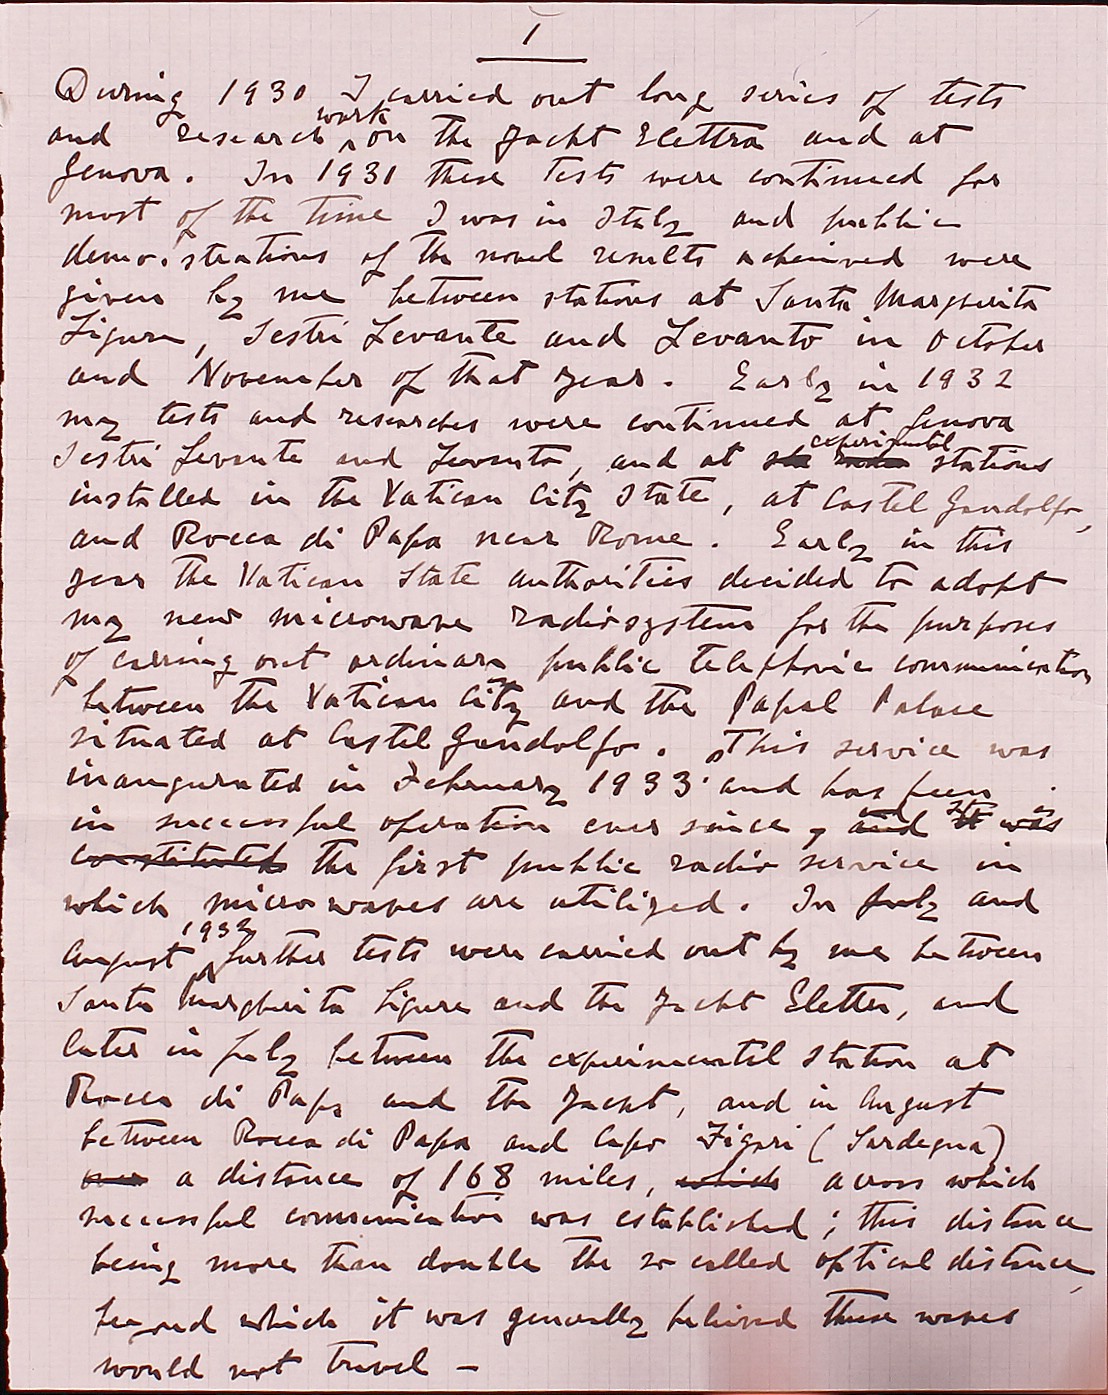 1
During 1930 I carried out long series of tests
and research work on the Yacht Elettra and at
Genova. In 1931 these tests were continued for
most of the time I was in Italy and public
demonstrations of the novel results acheived were
given by me between stations at Santa Margherita
Ligure, Sestri Levante and Levanto in October
and November of that year. Early in 1932
my tests and researches were continued at Genova
Sestri Levante and Levanto, and at experimental stations
installed in the Vatican City State, at Castel Gandolfo,
and Rocca di Papa near Rome. Early in this
year the Vatican State authorities decided to adopt
my new microwave radiosystem for the purposes
of carring out ordinary public telephonic communication
between the Vatican City and the Papal Palace
situated at Castel Gandolfo. This service was
inaugurated in February 1933 and has been
in successful operation ever since, and it is
constituted the first public radio service in
which microwaves are utilized. In July and
August 1932 further tests were carried out by me between
Santa Margherita Ligure and the Yacht Elettra, and
later in July between the experimental station at
Rocca di Papa and the Yacht, and in August
between Rocca di Papa and Capo Figari (Sardegna)
over a distance of 168 miles, which across which
successful communication was established; this distance
being more than double the so called optical distance,
beyond which it was generally believed these waves
would not travel —